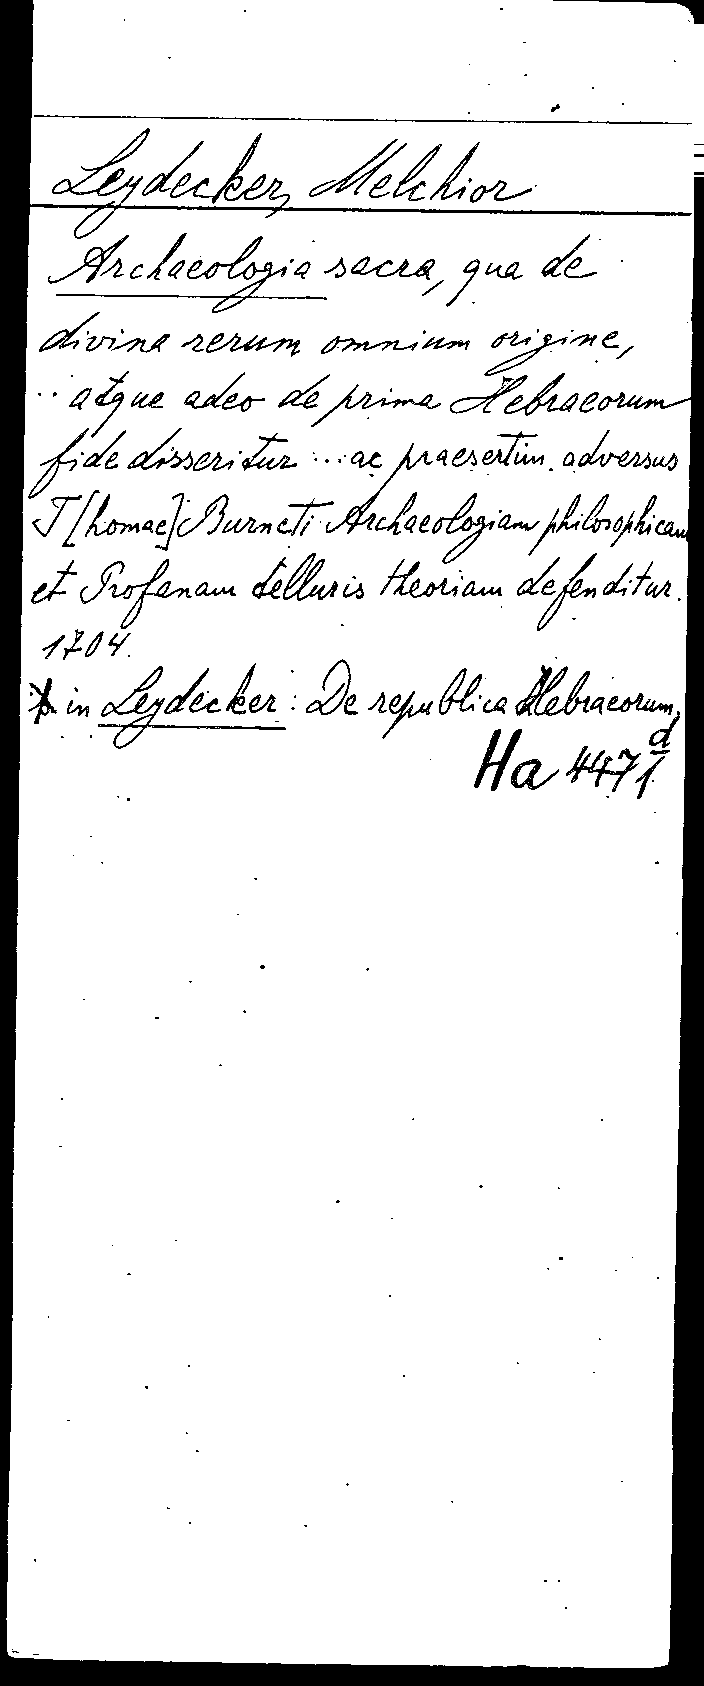 Leydecker, Melchior
Archaeologia sacra, qua de
divina rerum omnium origine,
.. atque adeo de prima Hebraeorum
fide disseritur ... ac praesertim adversus
T[homae] Burneti Archaeologiam philosophicam
et Profanam telluris theoriam defenditur.
1704.
in Leydecker: De republica Hebraeorum,
Ha 4471 d